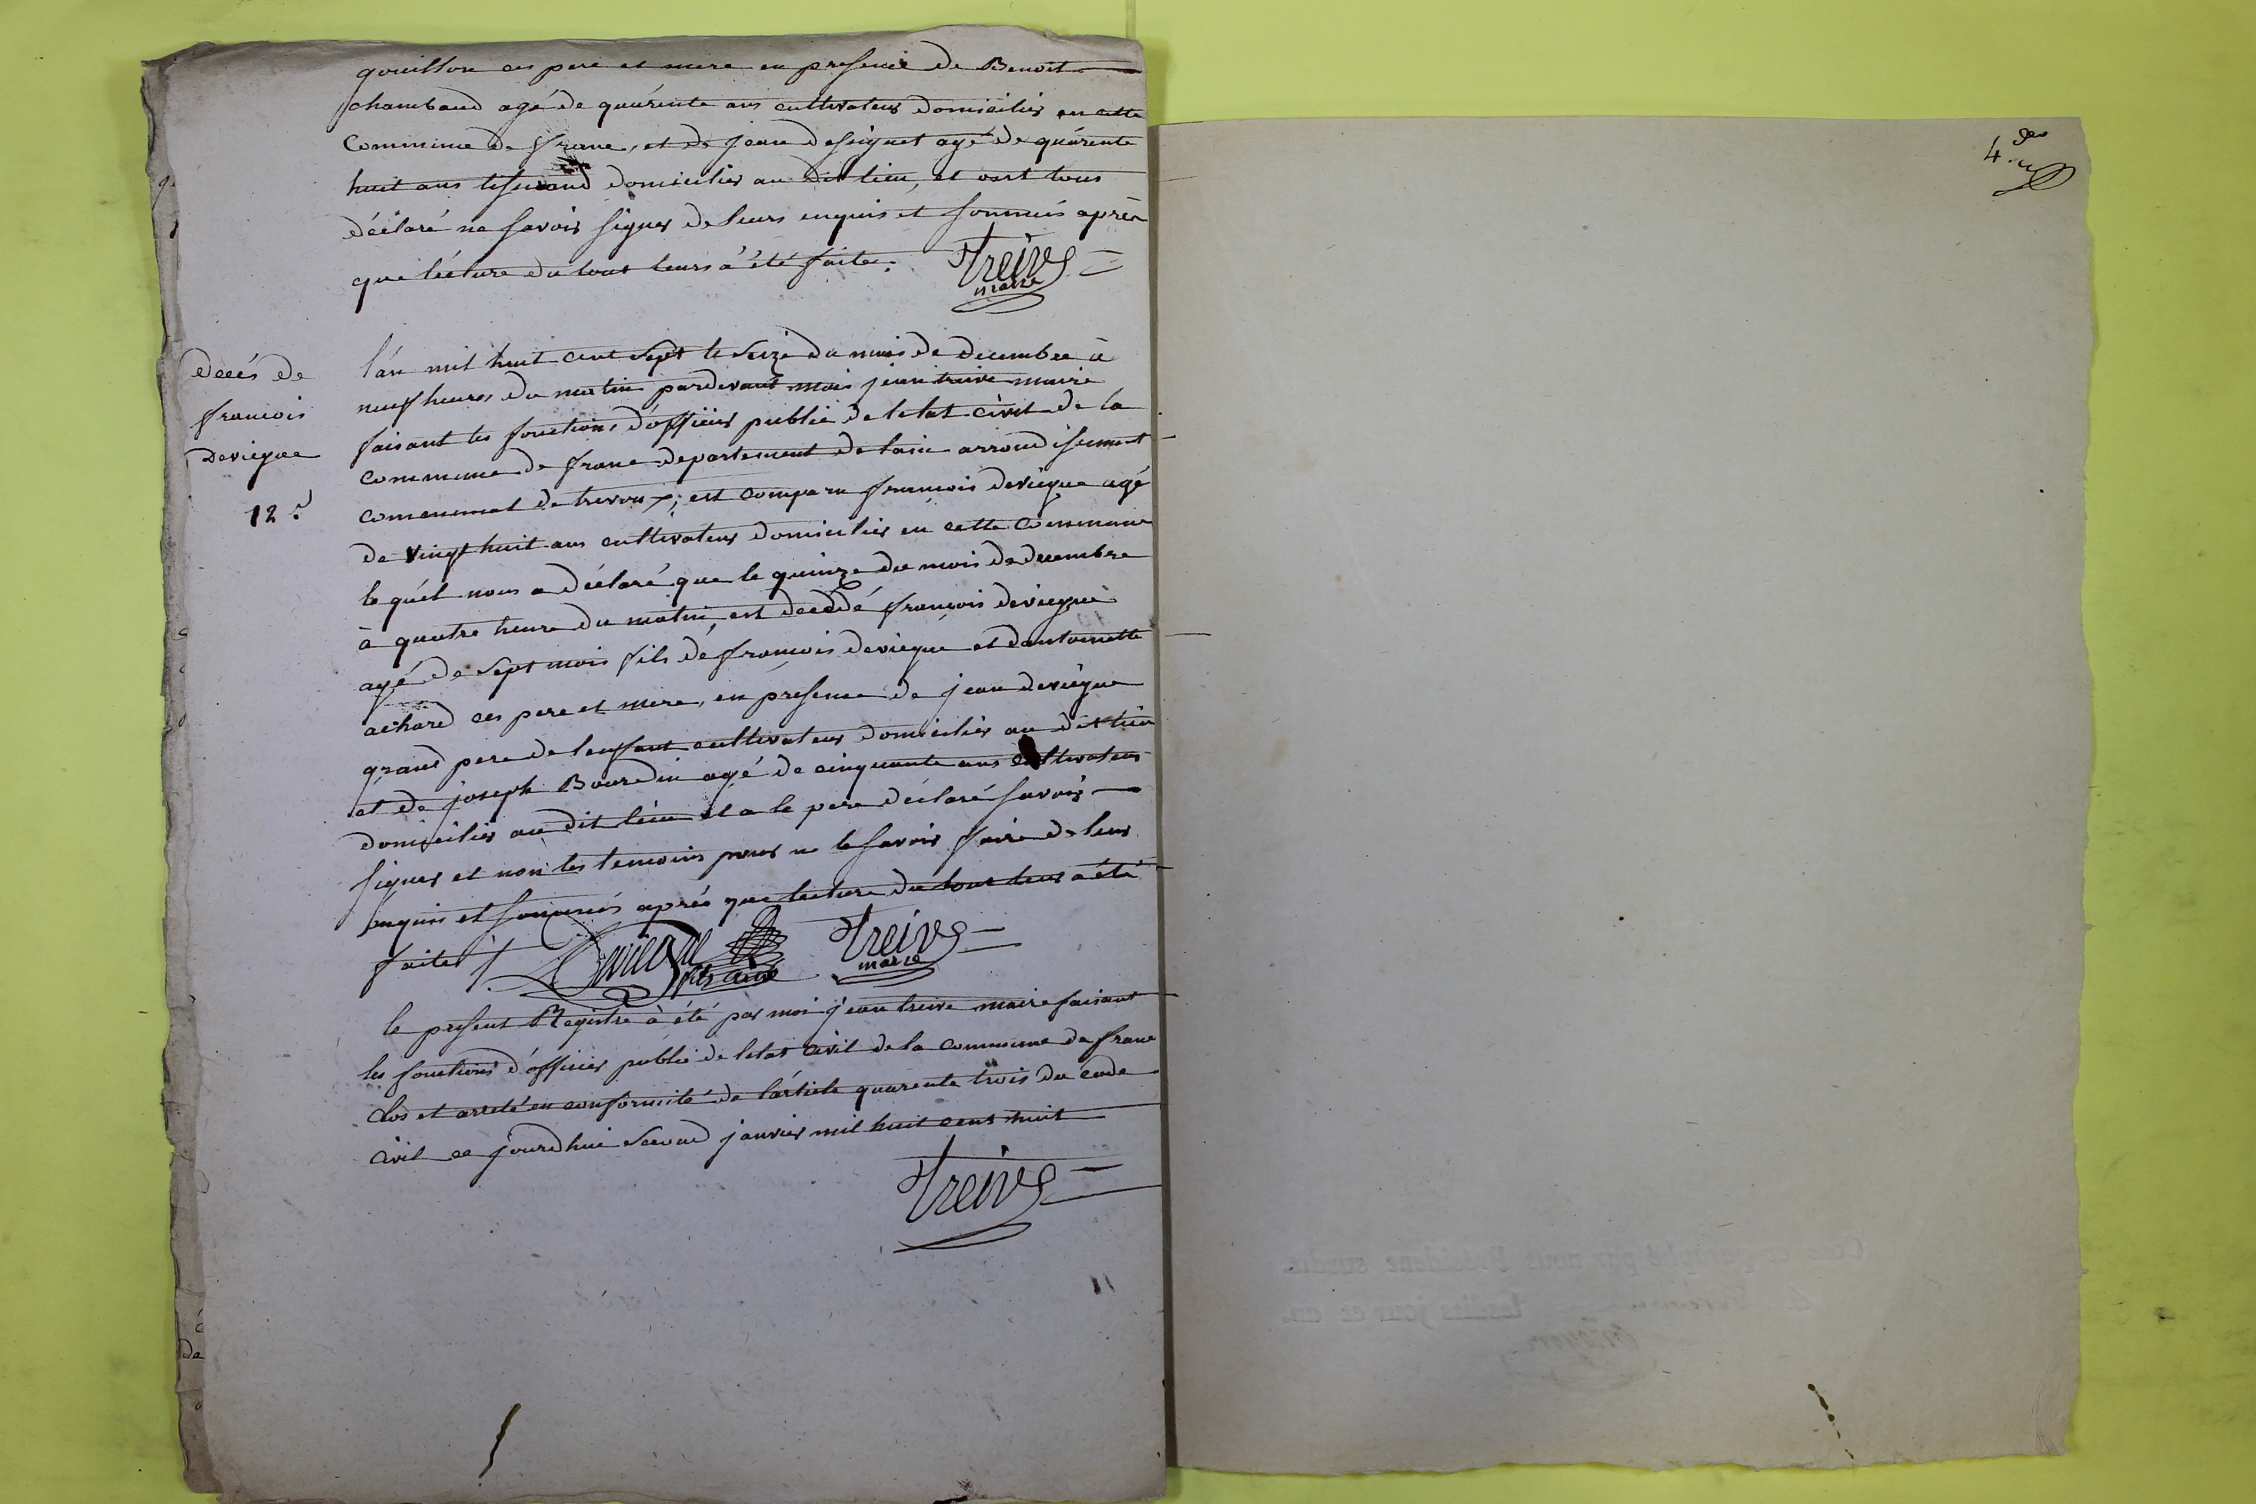 gouillon ces pere et mere en presence de Benoit
chambaud agé de quarente ans cultivateur domicilier en cette
Commune de franc, et de jean desseignet agé de quarente
huit ans tisserand domicilier au dit lieu, et ont tous
déclaré ne savoir signer de leurs enquis et sommés après
que lécture du tout leurs à été faite.
Treive
maire
décés de
francois
deviegue
12.e
l'an mil huit cent sept le seize du mois de decembre à
neuf heures du matin pardevant moi jean treive maire
faisant les fonctions d'officier public de letat civil de la
commune de franc departement de lain arrondissement
communal de trevoux; est comparu francois deviegue agé
de vingt huit ans cultivateur domicilier en cette commune
le quél nous a déclaré que le quinze du mois de decembre
à quatre heure du matin, est decedé françois deviegue
agé de sept mois fils de francois deviegue et dantoinette
achard ces pere et mere, en présence de jean deviegue
grand pere de lenfant cultivateur domicilier au dit lieu
et de joseph Bourdin agé de cinquante ans cultivateur
domicilier au dit lieu et a le pere déclaré savoir
signer et non les temoins pour ne le savoir faire de leur
enquis et sommés aprés que lecture du tout leur a été
faite
Deviegue
fils ainé
Treive
maire
le present Registre à été par moi jean treive maire faisant
les fonctions d'officier public de letat civil de la commune de franc
clos et arreté en conformité de l'article quarente trois du code
civil ce jourdhui second janvier mil huit cent huit
Treive
4.